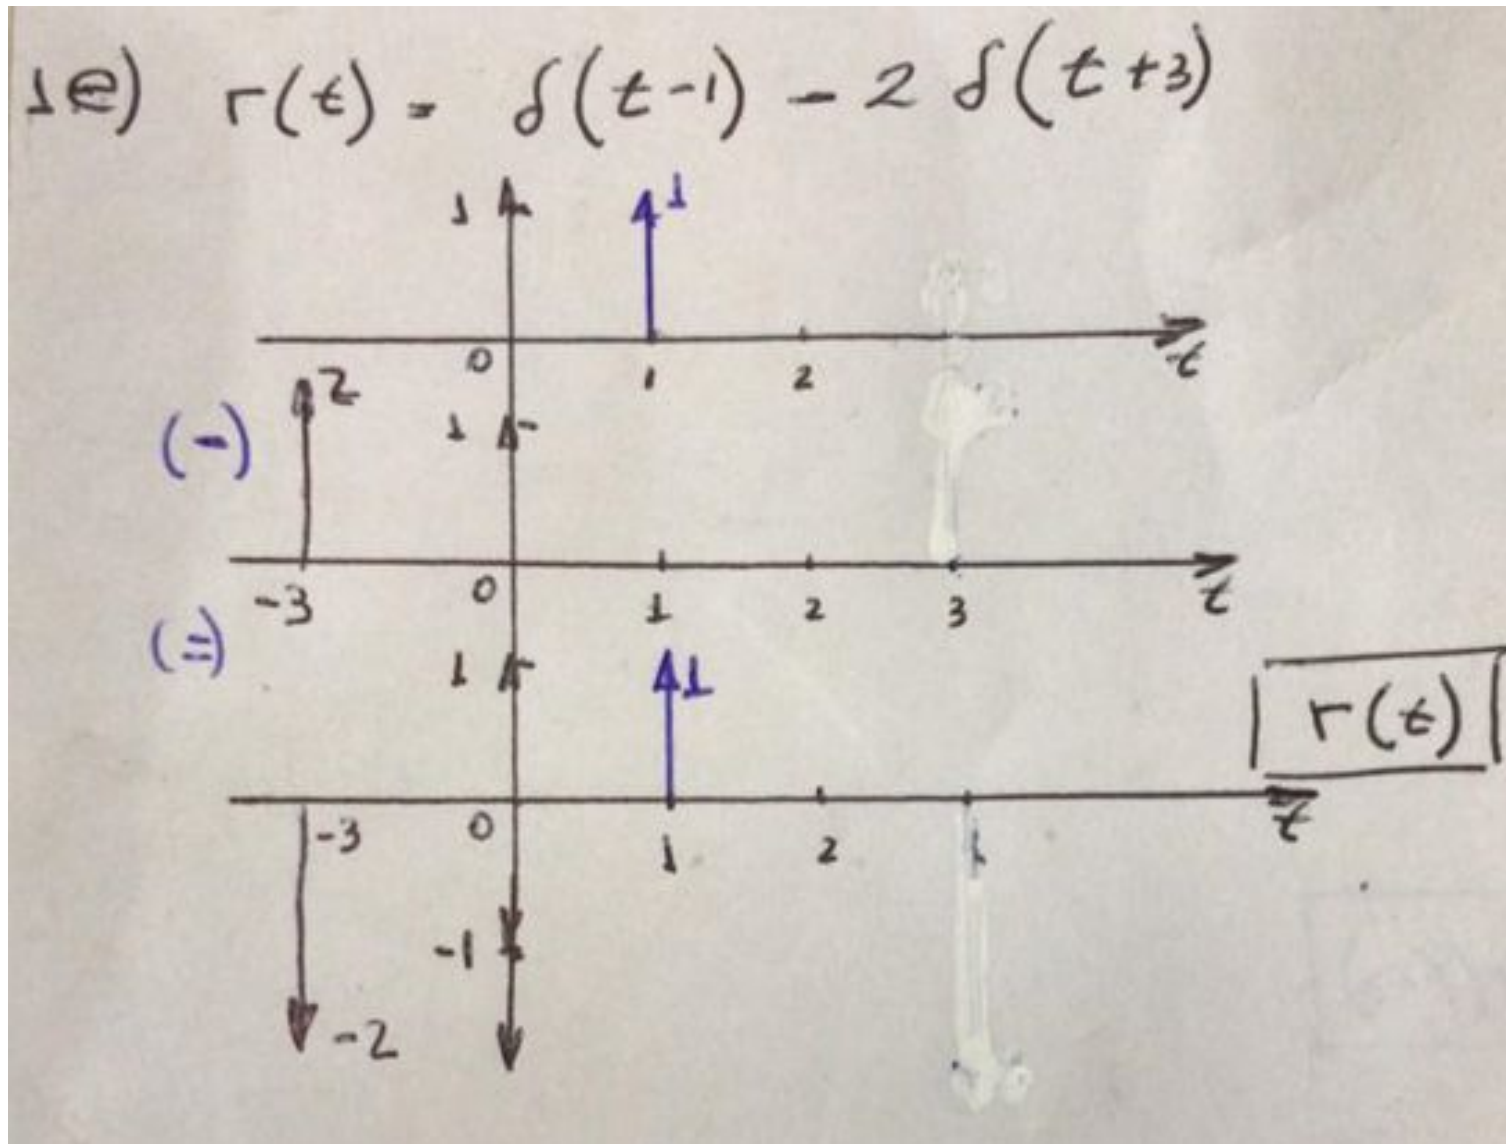 1e) r(t) = δ(t-1) - 2 δ(t+3)
1 1
0 1 2 t
2
(-) 1
-3 0 1 2 3 t
(=) 1 1
r(t)
-3 0 1 2 t
-1
-2